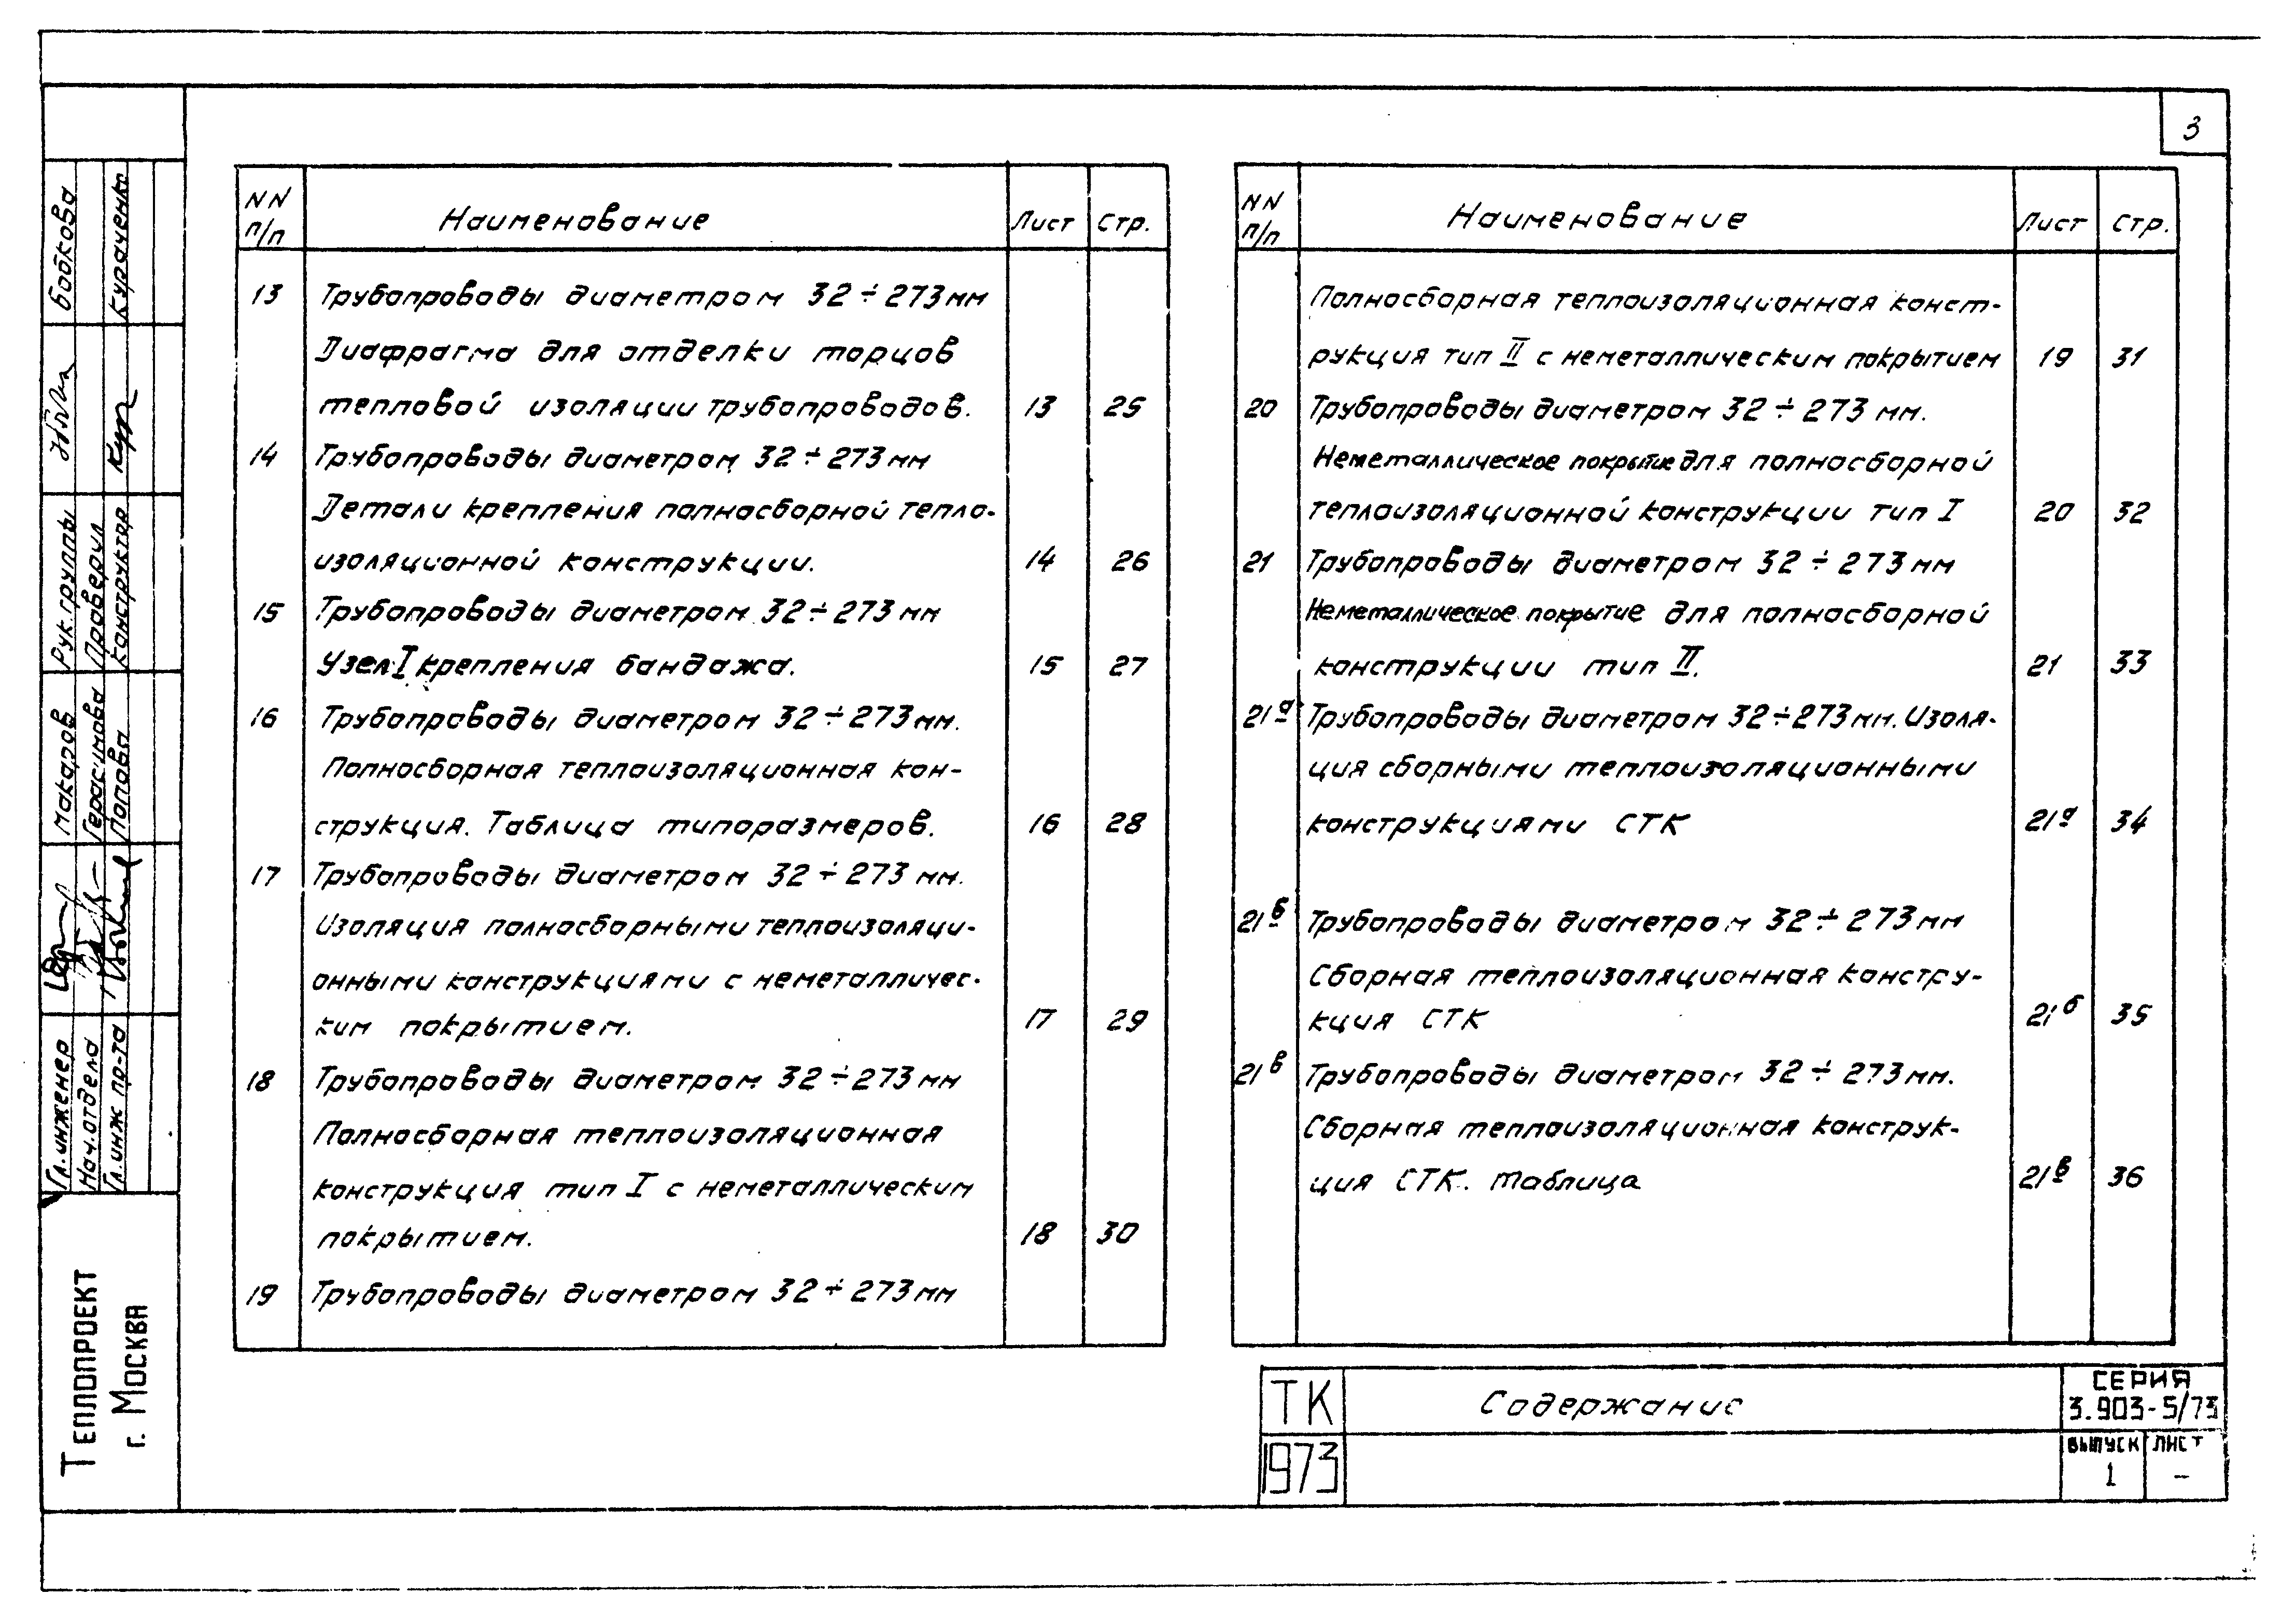 3
NN п/п Наименование Лист Стр.
13 Трубопроводы диаметром 32÷273мм
Диафрагма для отделки торцов
тепловой изоляции трубопроводов. 13 25
14 Трубопроводы диаметром 32÷273мм
Детали крепления полносборной тепло-
изоляционной конструкции. 14 26
15 Трубопроводы диаметром 32÷273мм
Узел I крепления бандажа. 15 27
16 Трубопроводы диаметром 32÷273мм.
Полносборная теплоизоляционная кон-
струкция. Таблица типоразмеров. 16 28
17 Трубопроводы диаметром 32÷273 мм.
Изоляция полносборными теплоизоляци-
онными конструкциями с неметалличес-
ким покрытием. 17 29
18 Трубопроводы диаметром 32÷273мм
Полносборная теплоизоляционная
конструкция тип I с неметаллическим
покрытием. 18 30
19 Трубопроводы диаметром 32÷273мм
NN п/п Наименование Лист Стр.
Полносборная теплоизоляционная конст-
рукция тип II с неметаллическим покрытием 19 31
20 Трубопроводы диаметром 32÷273 мм.
Неметаллическое покрытие для полносборной
теплоизоляционной конструкции тип I 20 32
21 Трубопроводы диаметром 32÷273мм
Неметаллическое покрытие для полносборной
конструкции тип II. 21 33
21а Трубопроводы диаметром 32÷273мм. Изоля-
ция сборными теплоизоляционными
конструкциями СТК 21а 34
21б Трубопроводы диаметром 32÷273мм
Сборная теплоизоляционная констру-
кция СТК 21б 35
21в Трубопроводы диаметром 32÷273мм.
Сборная теплоизоляционная конструк-
ция СТК. Таблица 21в 36
ТК 1973
Содержание
СЕРИЯ
3.903-5/73
ВЫПУСК ЛИСТ
1 –
Гл.инженер Макаров Рук.группы Бобкова
Нач.отдела Герасимова Проверил
Гл.инж пр-та Попова Конструктор Кураченко
ТЕПЛОПРОЕКТ
г. МОСКВА